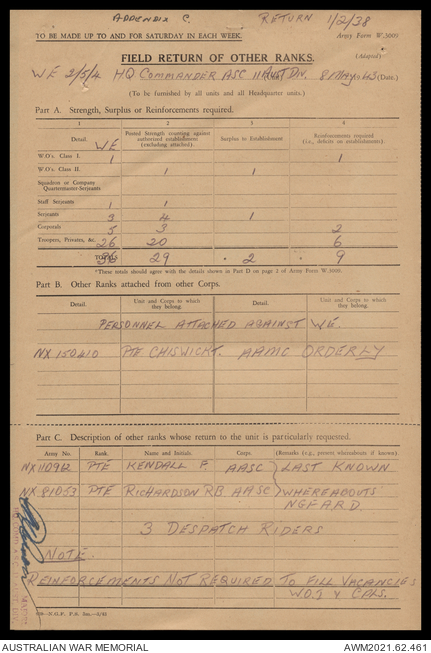 APPENDIX C. RETURN 1/2/38
TO BE MADE UP TO AND FOR SATURDAY IN EACH WEEK. Army Form W.3009
FIELD RETURN OF OTHER RANKS. (Adapted)
WE 2/5/4 HQ COMMANDER ASC 11 AUST DIV. 8 MAY 43 (Date.)
(To be furnished by all units and all Headquarter units.)
Part A. Strength, Surplus or Reinforcements required.
1 2 3 4
Detail. WE Posted Strength counting against authorized establishment (excluding attached). Surplus to Establishment Reinforcements required (i.e., deficits on establishments).
W.O's. Class I. 1 1
W.O's. Class II. 1 1
Squadron or Company Quartermaster-Serjeants
Staff Serjeants 1 1
Serjeants 3 4 1
Corporals 5 3 2
Troopers, Privates, &c. 26 20 6
TOTAL 36 29 2 9
*These totals should agree with the details shown in Part D on page 2 of Army Form W.3009.
Part B. Other Ranks attached from other Corps.
Detail. Unit and Corps to which they belong. Detail. Unit and Corps to which they belong.
PERSONNEL ATTACHED AGAINST WE.
NX150410 PTE CHISWICK T. AAMC ORDERLY
Part C. Description of other ranks whose return to the unit is particularly requested.
Army No. Rank. Name and Initials. Corps. (Remarks (e.g., present whereabouts if known)
NX110912 PTE KENDALL F. AASC LAST KNOWN
NX81053 PTE RICHARDSON R.B. AASC WHEREABOUTS
NGF A.R.D.
3 DESPATCH RIDERS
NOTE.
REINFORCEMENTS NOT REQUIRED TO FILL VACANCIES
W.O.I & CPLS.
AUSTRALIAN WAR MEMORIAL AWM2021.62.461